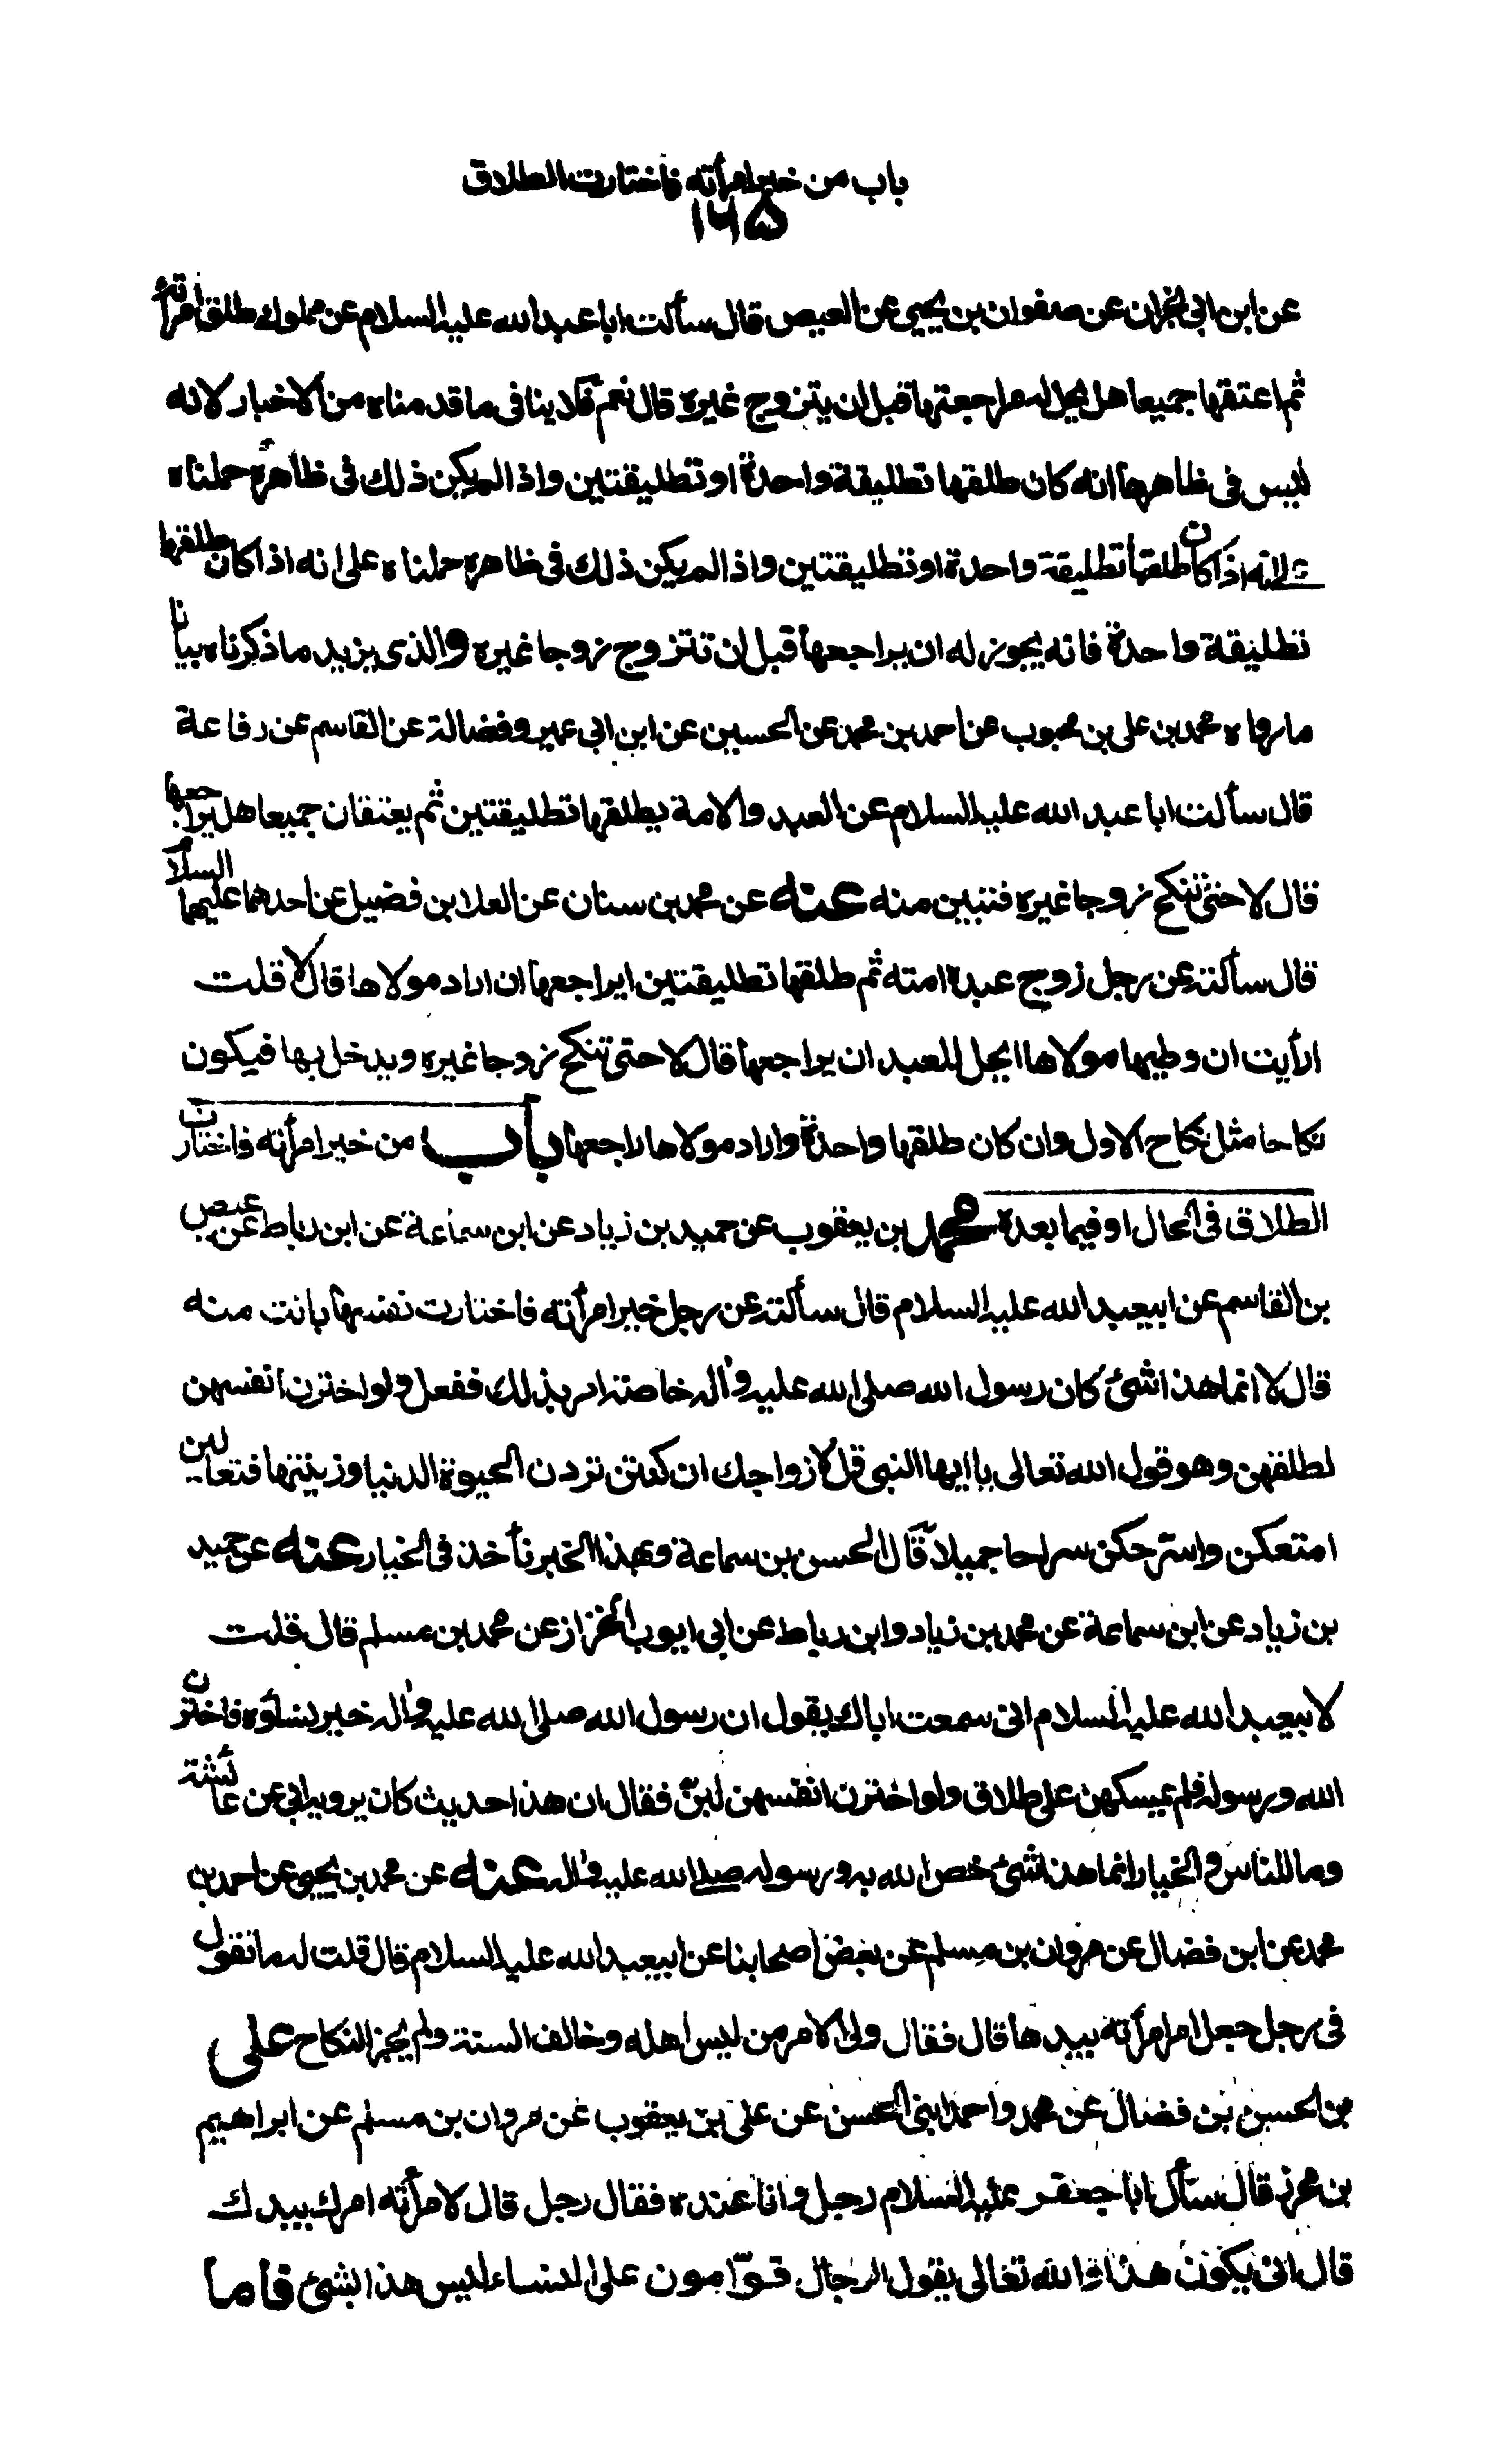 باب من خير امرأته فاختارت الطلاق
١٦٥
عن ابن ابى نجران عن صفوان بن يحيى عن العيص قال سألت ابا عبد الله عليه السلام عن مملوك طلق امرأته
ثم اعتقها جميعا هل يحل له مراجعتها قبل ان يتزوج غيره قال نعم فلا ينافى ما قدمناه من الاخبار لانه
ليس فى ظاهرها انه كان طلقها تطليقة واحدة او تطليقتين واذا لم يكن ذلك فى ظاهره حملناه
على انه اذا كان طلقها تطليقة واحدة او تطليقتين واذا لم يكن ذلك فى ظاهره حملناه على انه اذا كان طلقها
تطليقة واحدة فانه يجوز له ان يراجعها قبل ان تتزوج زوجا غيره والذى يزيد ما ذكرناه بيانا
ما رواه محمد بن على بن محبوب عن احمد بن محمد عن الحسين عن ابن ابى عمير وفضالة عن القاسم عن رفاعة
قال سألت ابا عبد الله عليه السلام عن العبد والامة يطلقها تطليقتين ثم يعتقان جميعا هل يراجعها
قال لا حتى تنكح زوجا غيره فتبين منه عنه عن محمد بن سنان عن العلا بن فضيل عن احدهما عليهما السلام
قال سألته عن رجل زوج عبده امته ثم طلقها تطليقتين ايراجعها ان اراد مولاها قال لا قلت
ارأيت ان وطيها مولاها ايحل للعبد ان يراجعها قال لا حتى تنكح زوجا غيره ويدخل بها فيكون
نكاحا مثل نكاح الاول وان كان طلقها واحدة واراد مولاها راجعها باب من خير امرأته فاختارت
الطلاق فى الحال او فيما بعده محمد بن يعقوب عن حميد بن زياد عن ابن سماعة عن ابن رباط عن عيص
بن القاسم عن ابيعبد الله عليه السلام قال سألته عن رجل خير امرأته فاختارت نفسها بانت منه
قال لا انما هذا شئ كان رسول الله صلى الله عليه واله خاصة امر بذلك ففعل ولو اخترن انفسهن
لطلقهن وهو قول الله تعالى يا ايها النبى قل لازواجك ان كنتن تردن الحيوة الدنيا وزينتها فتعالين
امتعكن واسرحكن سراحا جميلا قال الحسن بن سماعة وبهذا الخبر نأخذ فى الخيار عنه عن حميد
بن زياد عن ابن سماعة عن محمد بن زياد وابن رباط عن ابى ايوب الخزاز عن محمد بن مسلم قال قلت
لابيعبد الله عليه السلام انى سمعت اباك يقول ان رسول الله صلى الله عليه واله خير نساؤه فاخترن
الله ورسوله فلم يمسكهن على طلاق ولو اخترن انفسهن لبن فقال ان هذا حديث كان يرويه ابى عن عائشة
وما للناس والخيار انما هذا شئ خص الله به رسوله صلى الله عليه واله عنه عن محمد بن يحيى عن احمد بن
محمد عن ابن فضال عن مروان بن مسلم عن بعض اصحابنا عن ابيعبد الله عليه السلام قال قلت له ما تقول
فى رجل جعل امر امرأته بيدها قال فقال ولى الامر من ليس اهله وخالف السنة ولم يجز النكاح على
بن الحسن بن فضال عن محمد واحمد ابنى الحسن عن على بن يعقوب عن مروان بن مسلم عن ابراهيم
بن محرز قال سأل ابا جعفر عليه السلام رجل وانا عنده فقال رجل قال لامرأته امرك بيدك
قال انى يكون هذا والله تعالى يقول الرجال قوّامون على النساء ليس هذا بشئ فاما